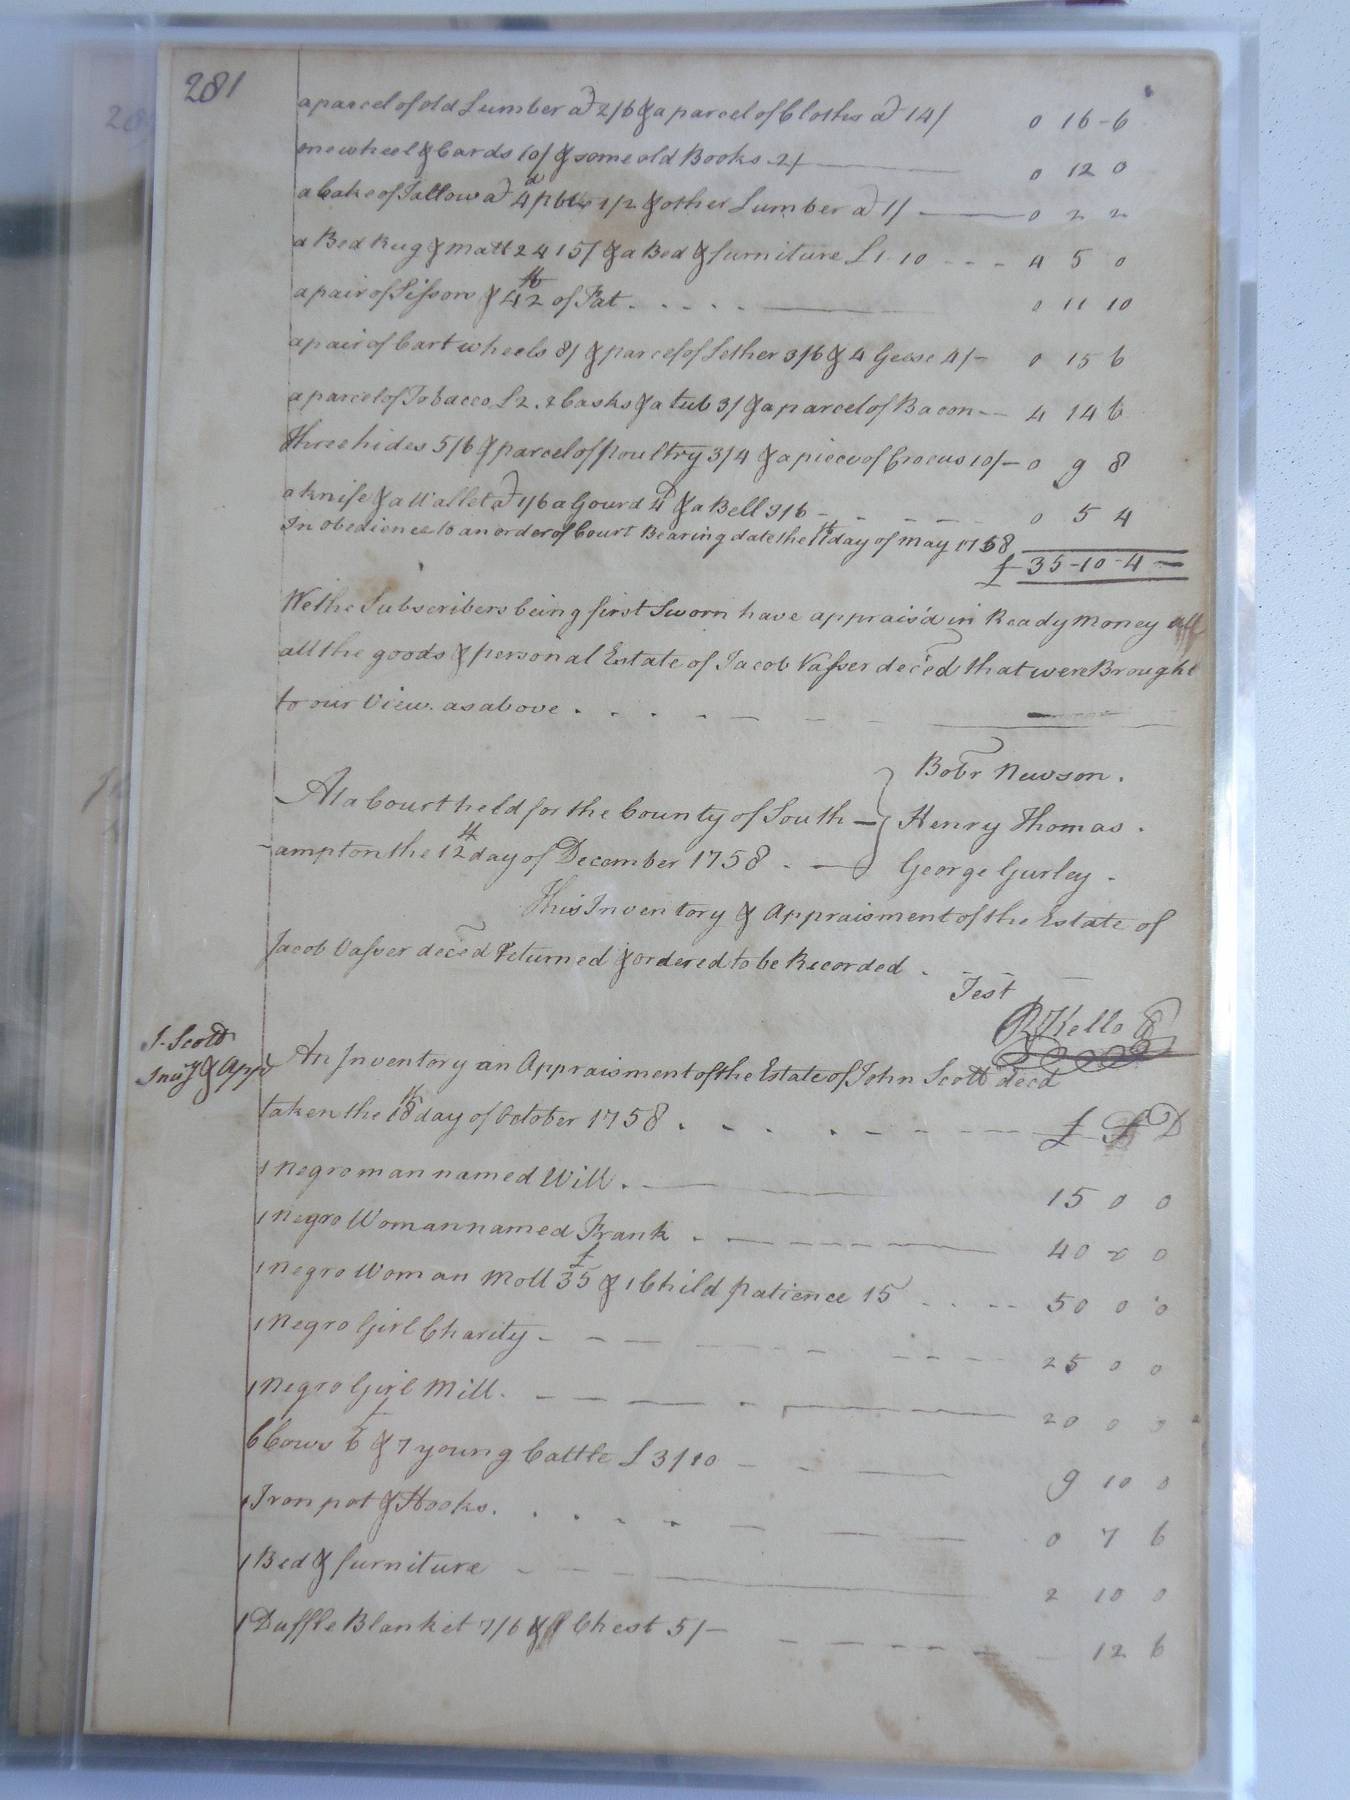 281
a parcel of old Lumber a 2/6 & a parcel of Cloths a 14/ 0 16-6
one wheel & Cards 10/ & some old Books 2/ 0 12 0
a Cake of Tallow a 4d p 1/2 & other Lumber a 1/ 0 2 2
a Bed Rug & Matt 2 15/ & a Bed & furniture £1-10 4 5 0
a pair of Sissors & 42 lb of Fat 0 11 10
a pair of Cart wheels 8/ & parcel of Lether 3/6 & 4 Geese 4/- 0 15 6
a parcel of Tobacco £2. 2 Casks & a tub 3/ & a parcel of Bacon 4 14 6
Three hides 5/6 & parcel of poultry 3/4 & a piece of Crocus 10/- 0 9 8
a knife & a Wallet a 1/6 a Gourd 4d & a Bell 3/6 0 5 4
In obedience to an order of Court Bearing date the 11th day of May 1758
£ 35-10-4
We the Subscribers being first Sworn have apprais'd in Ready Money
all the goods & personal Estate of Jacob Vasser dec'ed that were Brought
to our View. as above
Robr Newson.
At a Court held for the County of South- Henry Thomas.
-ampton the 12th day of December 1758 George Gurley
This Inventory & Appraisment of the Estate of
Jacob Vasser deced Returned & ordered to be Recorded
Test
R Kello
J. Scott
Invy & Appt
An Inventory an Appraisment of the Estate of John Scott decd
taken the 18th day of October 1758 £ S D
1 Negro man named Will. 15 0 0
1 Negro Woman named Frank 40 0 0
1 Negro Woman Moll £35 & 1 Child Patience 15 50 0 0
1 Negro Girl Charity 25 0 0
1 Negro Girl Mill. 20 0 0
6 Cows £6 & 7 young Cattle £3/10 9 10 0
1 Iron pot & Hooks. 0 7 6
1 Bed & furniture 2 10 0
1 Duffle Blanket 7/6 & 1 Chest 5/- 12 6